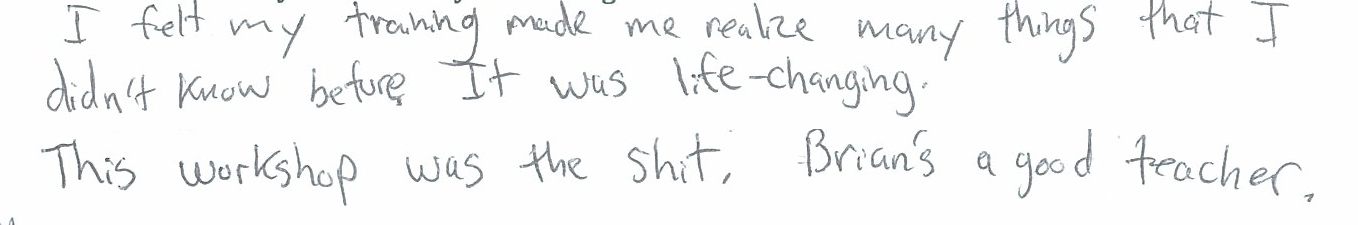 I felt my training made me realize many things that I
didn't know before. It was life-changing.
This workshop was the shit. Brian's a good teacher.